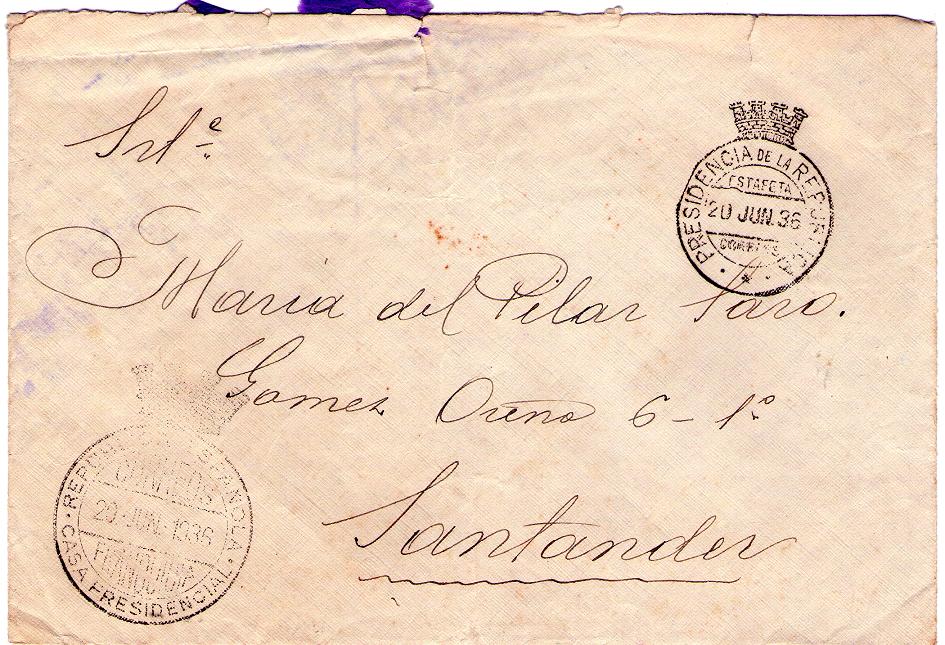 Srtª
PRESIDENCIA DE LA REPUBLICA
ESTAFETA
20 JUN. 36
CORREOS
María del Pilar Saro.
Gomez Oreña 6 - 1º
Santander
REPUBLICA ESPAÑOLA
CORREOS
20 JUN. 1936
FRANQUICIA
CASA PRESIDENCIAL